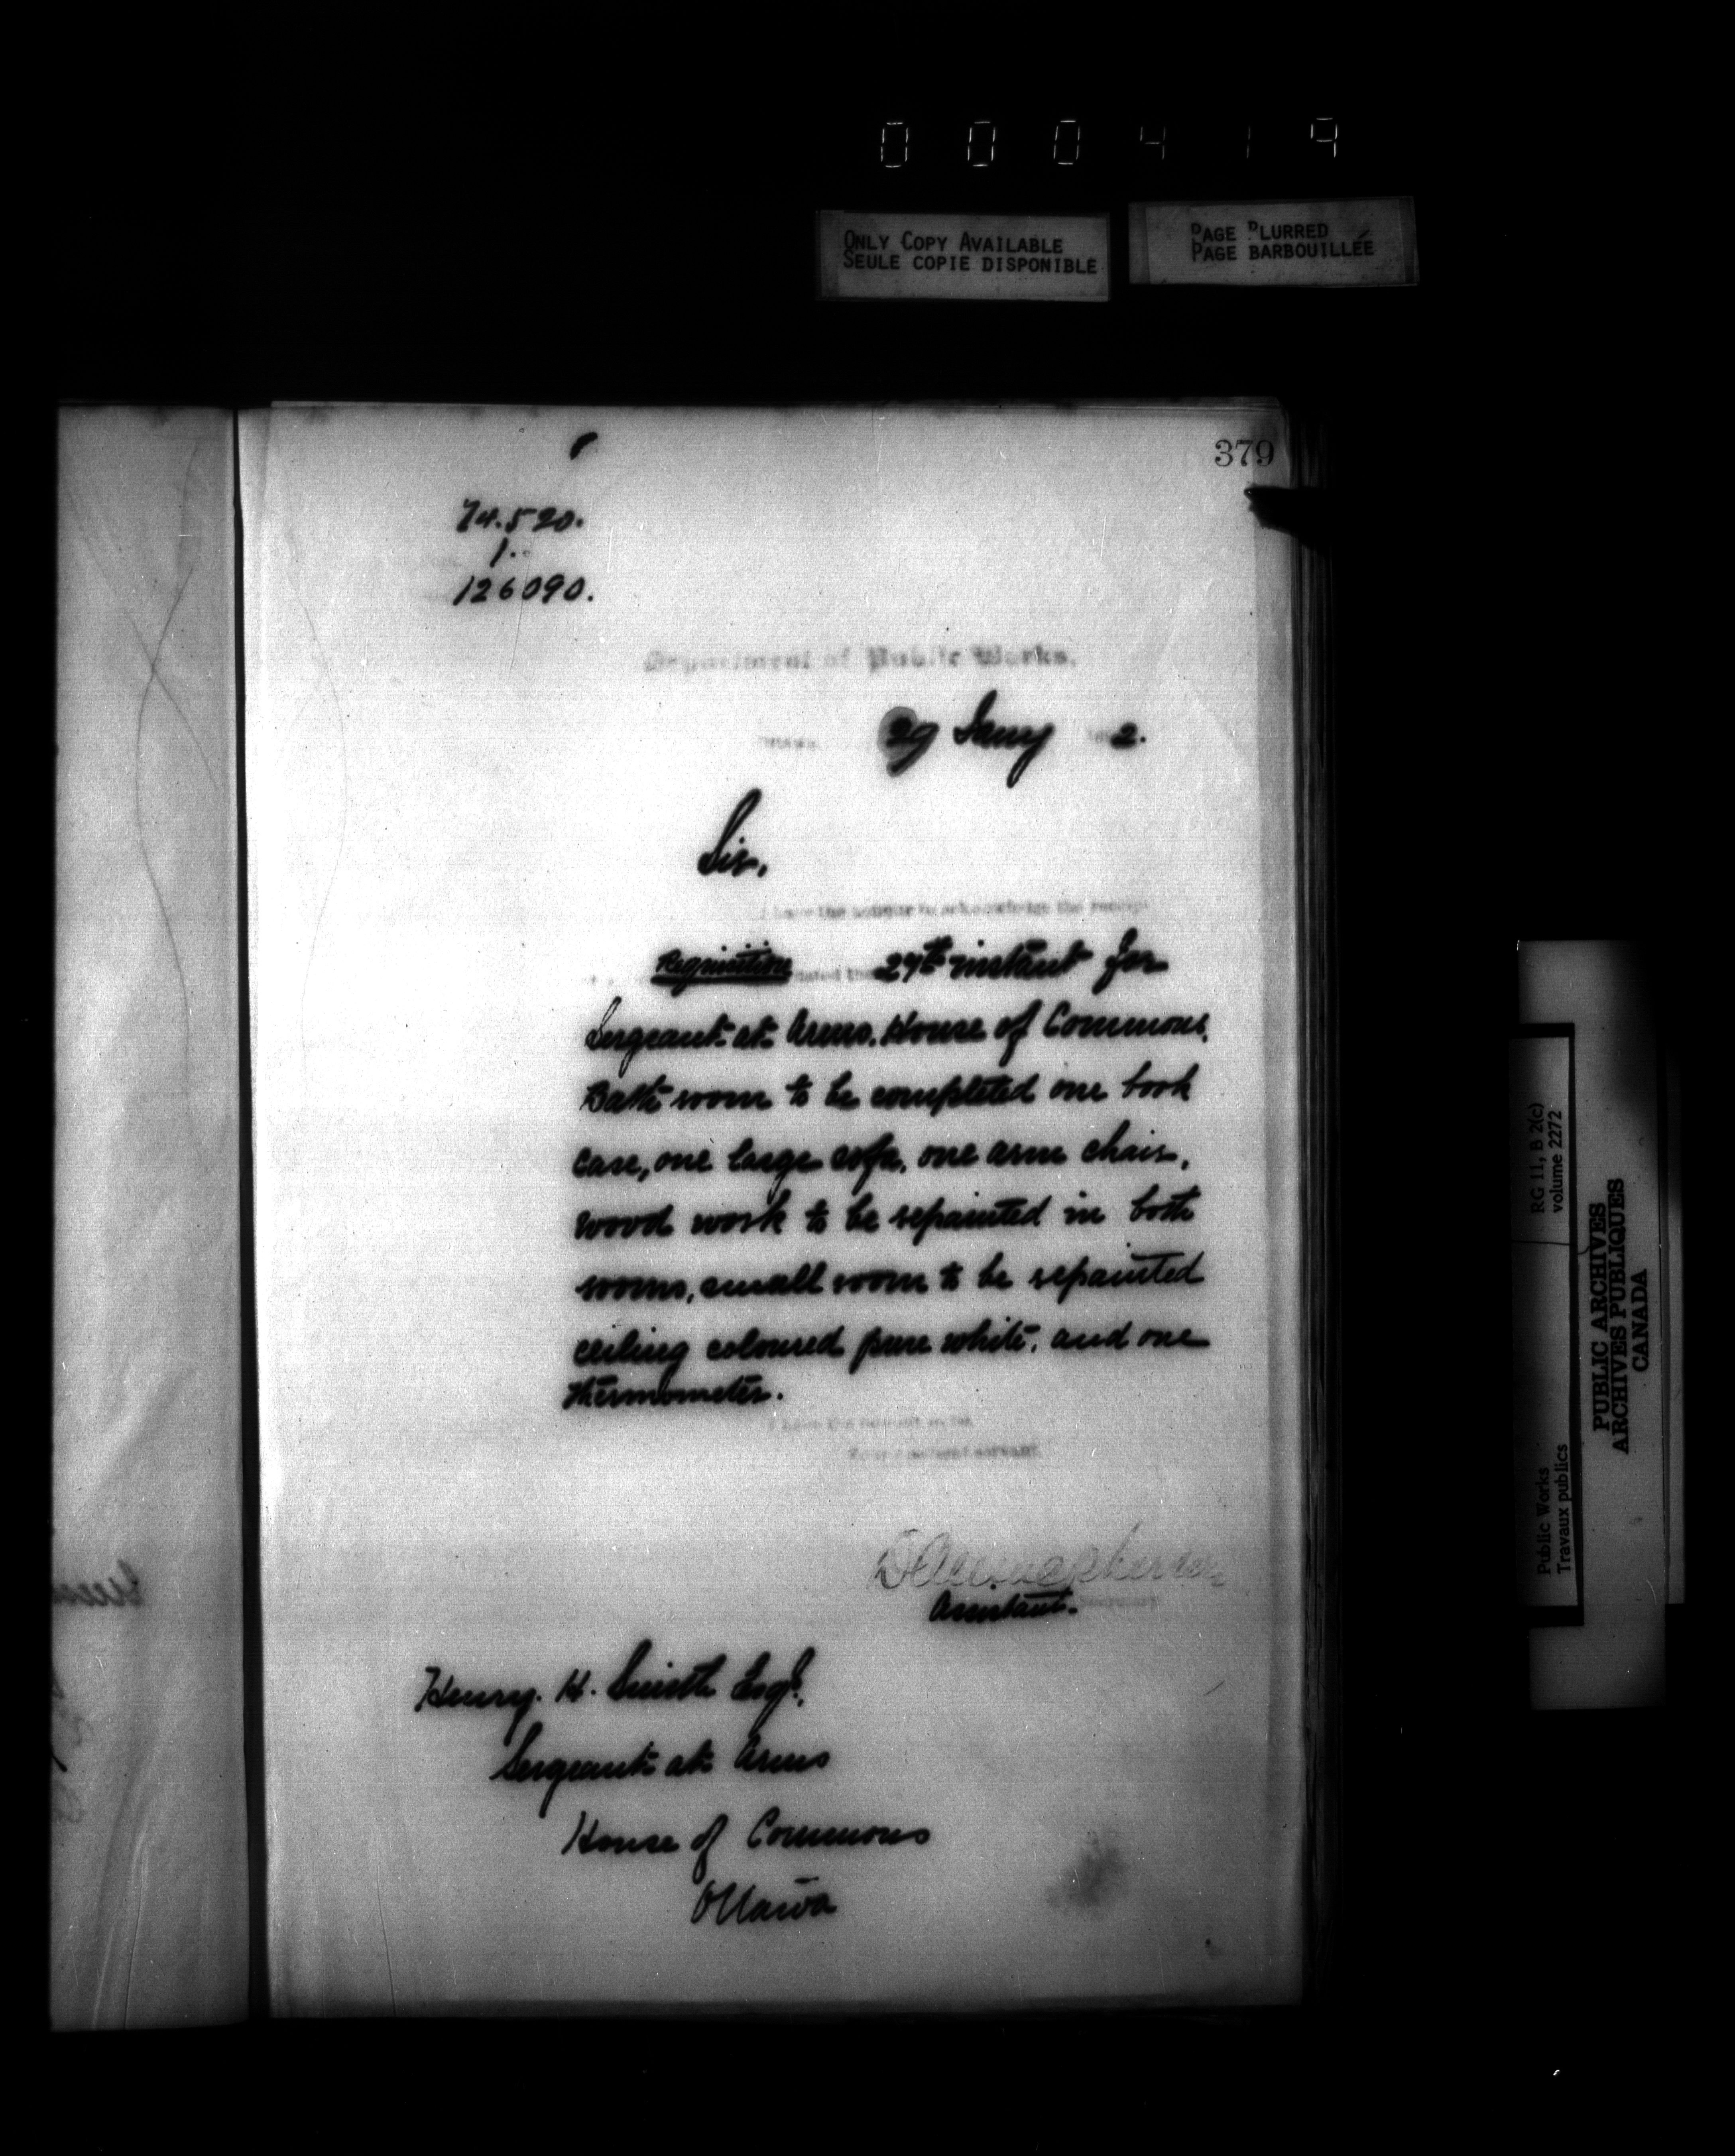 0 0 0 4 1 9
ONLY COPY AVAILABLE
SEULE COPIE DISPONIBLE
PAGE BLURRED
PAGE BARBOUILLÉE
379
74.520.
1.
126090.
Department of Public Works.
29 Jany 2.
Sir,
I have the honour to acknowledge the receipt
Requisition dated the 27th instant for
Sergeant-at-Arms. House of Commons.
Bath room to be completed one book
case, one large sofa, one arm chair,
wood work to be repainted in both
rooms, small room to be repainted
ceiling coloured pure white, and one
thermometer.
I have the honour to be
Your obedient servant,
Assistant. Secretary
Henry. H. Smith Esqr.
Sergeant at Arms
House of Commons
Ottawa
Public Works
Travaux publics
RG 11, B 2(c)
volume 2272
PUBLIC ARCHIVES
ARCHIVES PUBLIQUES
CANADA